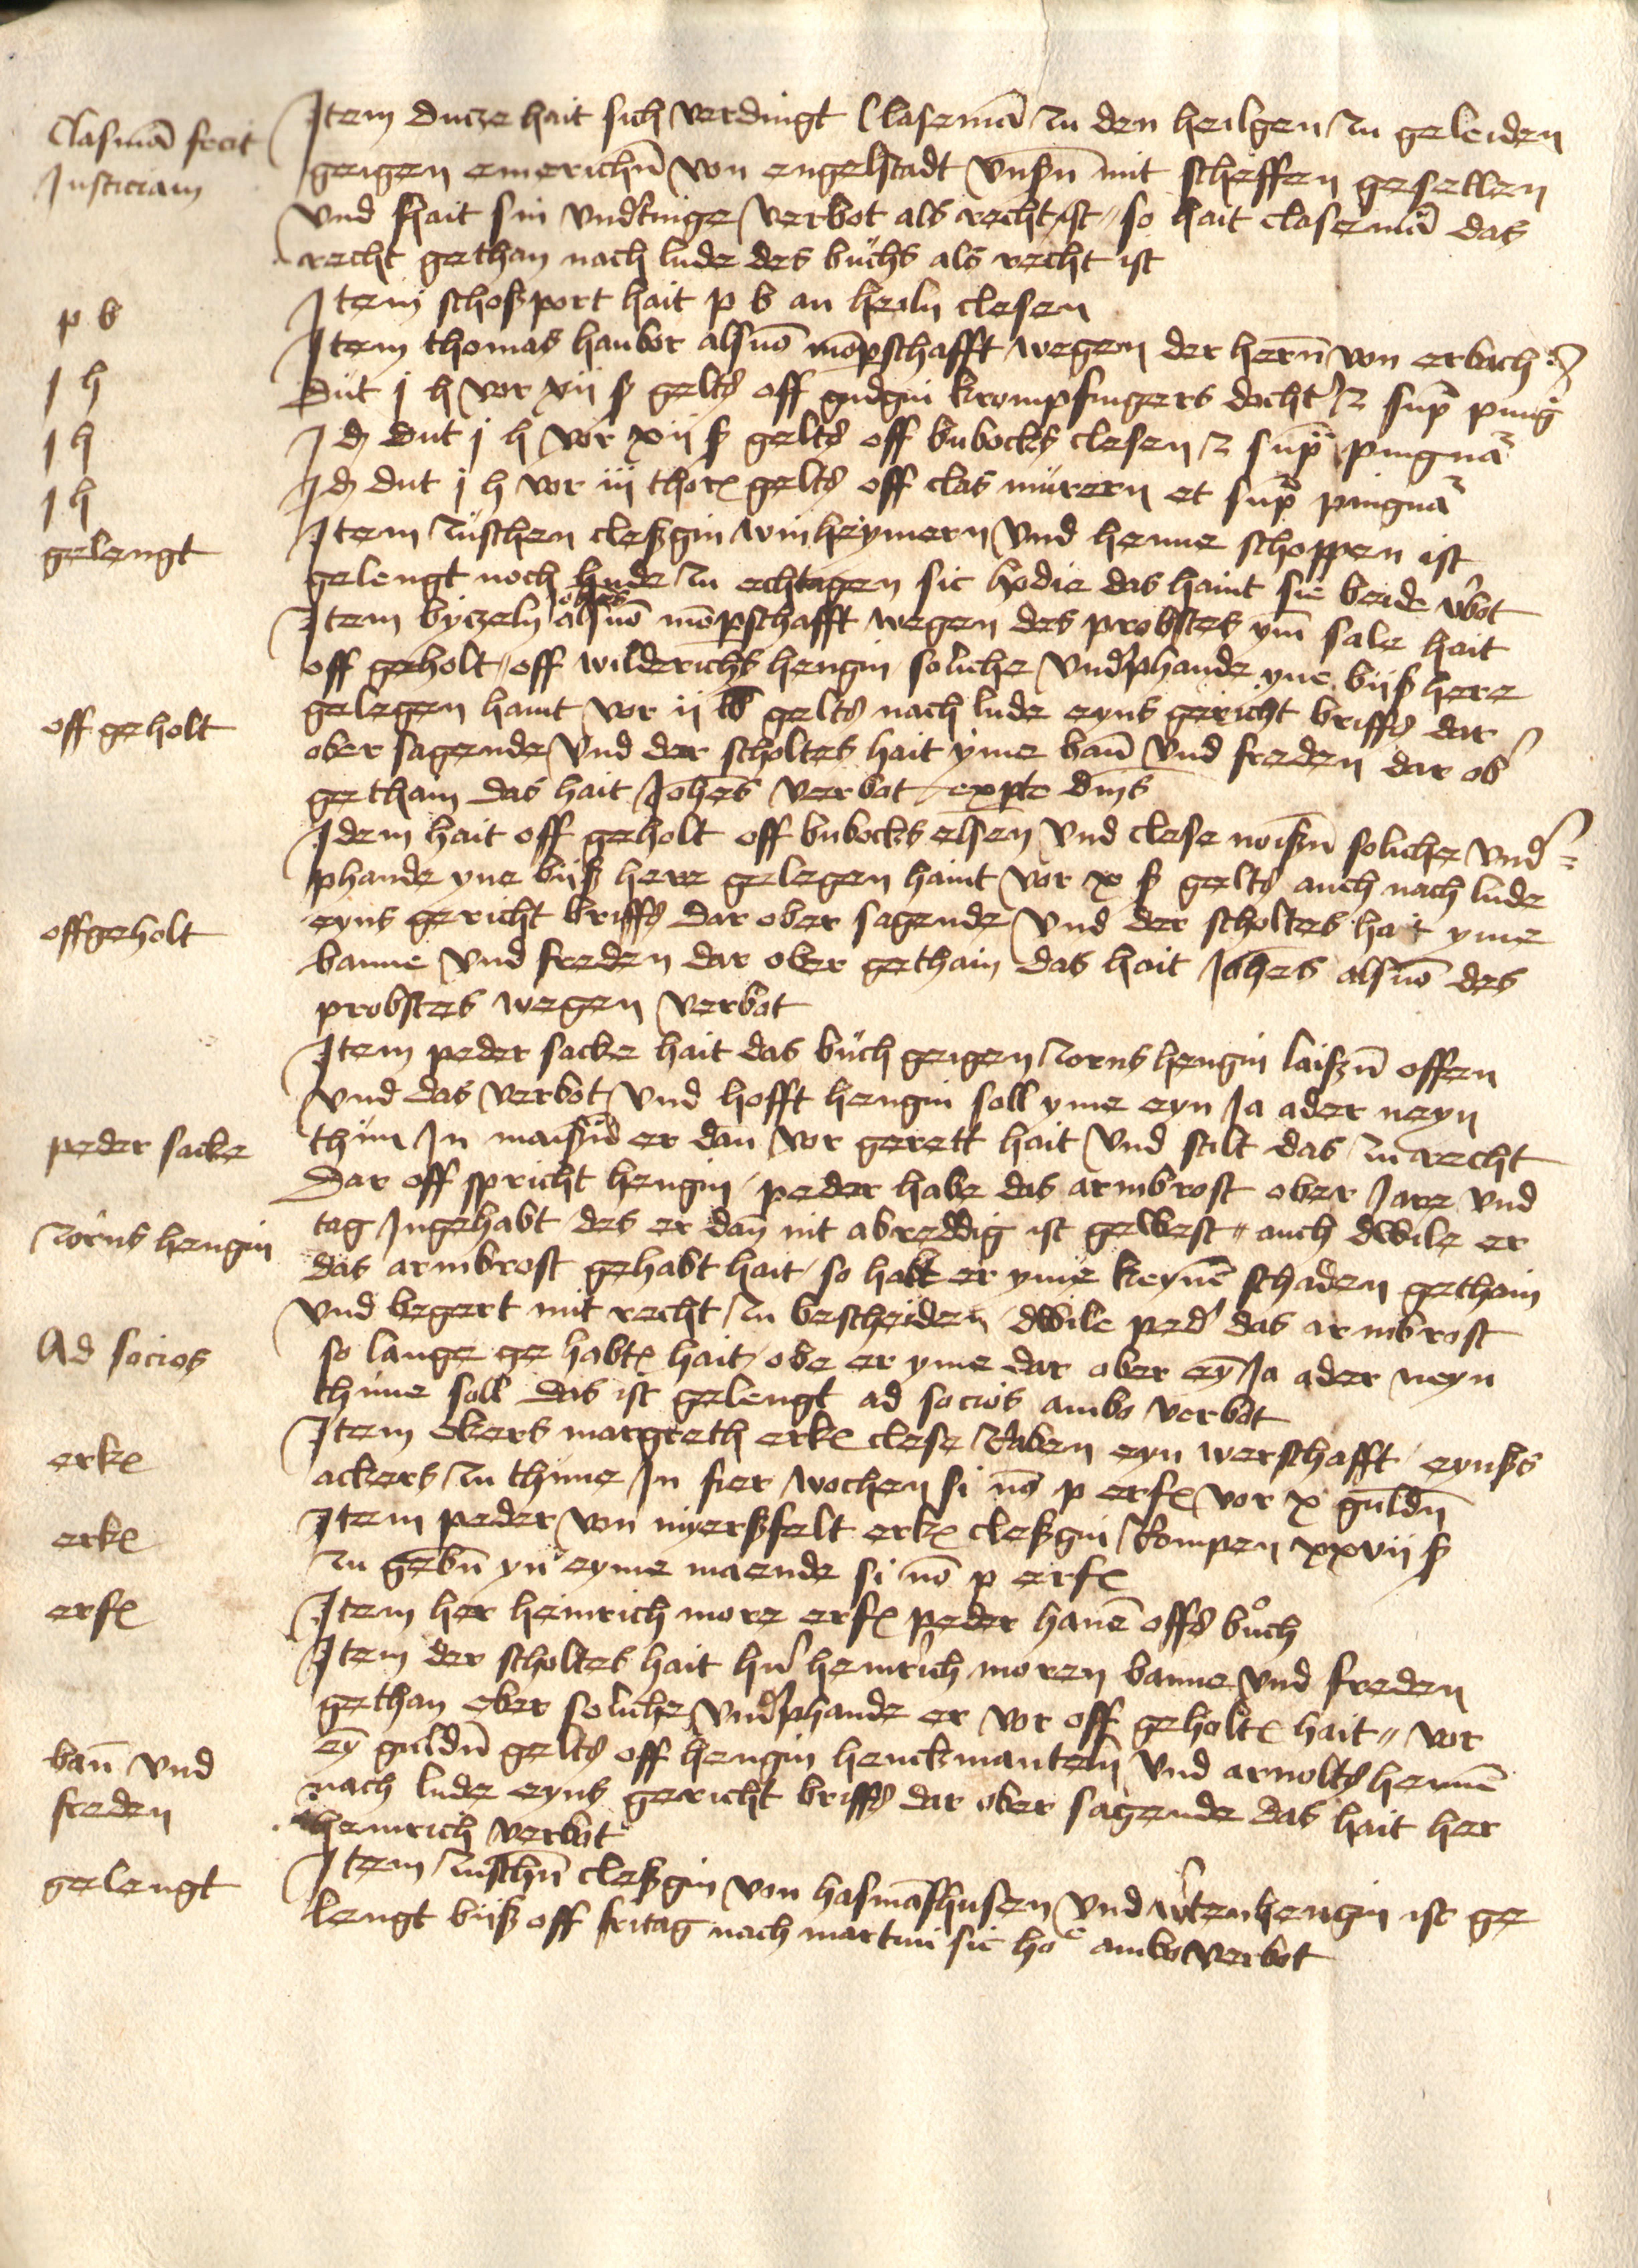 Clasmā fecit
Justiciam
Item Ducze hait sich verdingt Clasemā zu den heilgen zu geleiden
geigen emerichn̄ von engelstadt vnsn̄ mit scheffen gesellen
vnd hait sin vndtinge verbot als recht ist so hait clasemā das
recht gethan nach lude des buchs als recht ist
p b
Item schoßport hait p b an heiln clesen
Item thomas haubor alsuō mōpschafft wegen der hern̄ von erbach
j h
Dut j h vor xii ß gelts off gudgin krompfingers docht' et sup ping
j h
Id dut j h vor xii ß gelts off bubocks clesen et sup pingnā
j h
Id dut j h vor iij thor gelts off clas murern et sup pingnā
gelengt
Item zuschen cleßgin winheymern vnd henne schoppen ist
gelengt noch hude zu echtagen sic hodie das haint sie beide v'bot
Item byczeln Johes alsuō mōpschafft wegen des probstes ym sale hait
off geholt off wilderichs hengin soliche vnd'phande yne biß here
off geholt
gelegen haint vor ii lb gelts nach lude eyns gericht briffs dar
ober sagende vnd der scholtes hait yme bañ vnd freden dar ob'
gethain das hait Johes verbot expte dms
Idem hait off geholt off bubocks elsen vnd clese noißn̄ soliche vnd'
phande yne biß here gelegen haint vor x ß gelts auch nach lude
offgeholt
eyns gericht briffs dar ober sagende vnd der scholtes hait yme
banne vnd freden dar ober gethain das hait Johes alsuō des
probstes wegen verbot
Item peder sacke hait das buch geigen zorns hengin laißn̄ offen
vnd das verbot vnd hofft hengin soll yme eyn Ja ader neyn
peder sacke
thun In maißn̄ er dan vor gerett hait vnd stilt das zu recht
Dar off spricht hengin peder habe das armbrost ober Jare vnd
zorns hengin
tag Ingehabt des er dañ nit abreddig ist gewest auch dwile er
das armbrost gehabt hait so habt er yme keynē schaden gethain
vnd begert mit recht zu bescheiden dwile ped' das armbrost
Ad socios
so lange gehabt hait obe er yme dar ober ey Ja ader neyn
thune soll das ist gelengt ad socios ambo verbot
erk
Item ekers margreth erk clese raben eyn werschafft eynßs
ackers zu thune In fier wochen si nō p erf vor x guldn̄
erk
Item peder von nyerßfelt erk cleßgin rompen xxvii ß
zu gebn̄ yn eyme maende si nō p erf
erf
Item her heinrich more erf peder hanē offs buch
Item der scholtes hait hn̄ heinrich moren banne vnd freden
gethan ober soliche vnd'phande er vor off geholt hait vor
bañ vnd
ey guldn̄ gelts off hengin henckmanteln vnd arnolts hennē
freden
nach lude eyns gericht briffs dar ober sagende das hait her
heinrich verbot
gelengt
Item zuschn̄ cleßgin von hasmāßhusen vnd v'tenhengin ist ge
lengt biß off fritag nach martini sic hoe ambo verbot